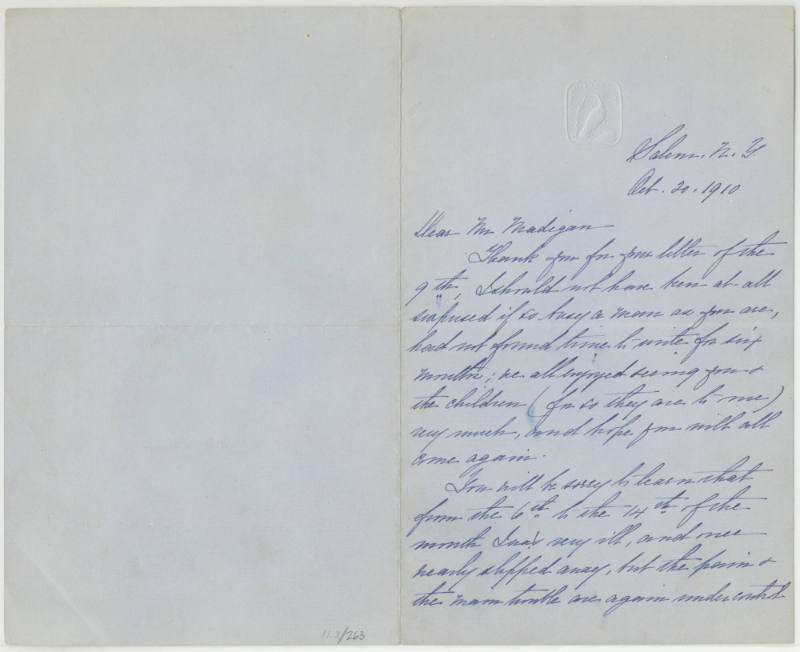 Salem. N. Y.
Oct. 20. 1910
Dear Mr Madigan
Thank you for your letter of the
9th, I should not have been at all
surprised if so busy a man as you are,
had not found time to write for six
months; we all enjoyed seeing you &
the children (for so they are to me)
very much, and hope you will all
come again.
You will be sorry to learn that
from the 6th to the 14th of the
month I was very ill, and once
nearly slipped away, but the pain &
the main trouble are again under control
11.3/263